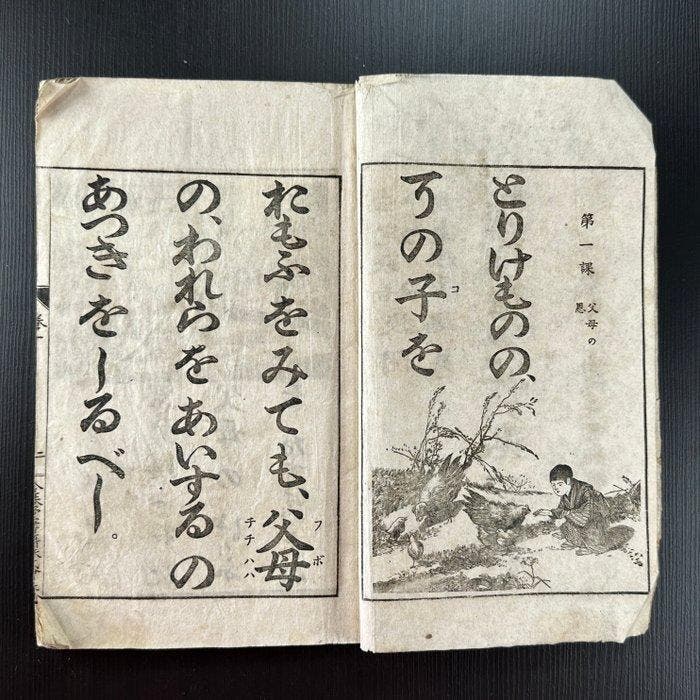 第一課 父母の恩
とりけものの、
その子を
コ
おもふをみても、父母
フボ
チチハハ
の、われらをあいするの
あつきをしるべし。